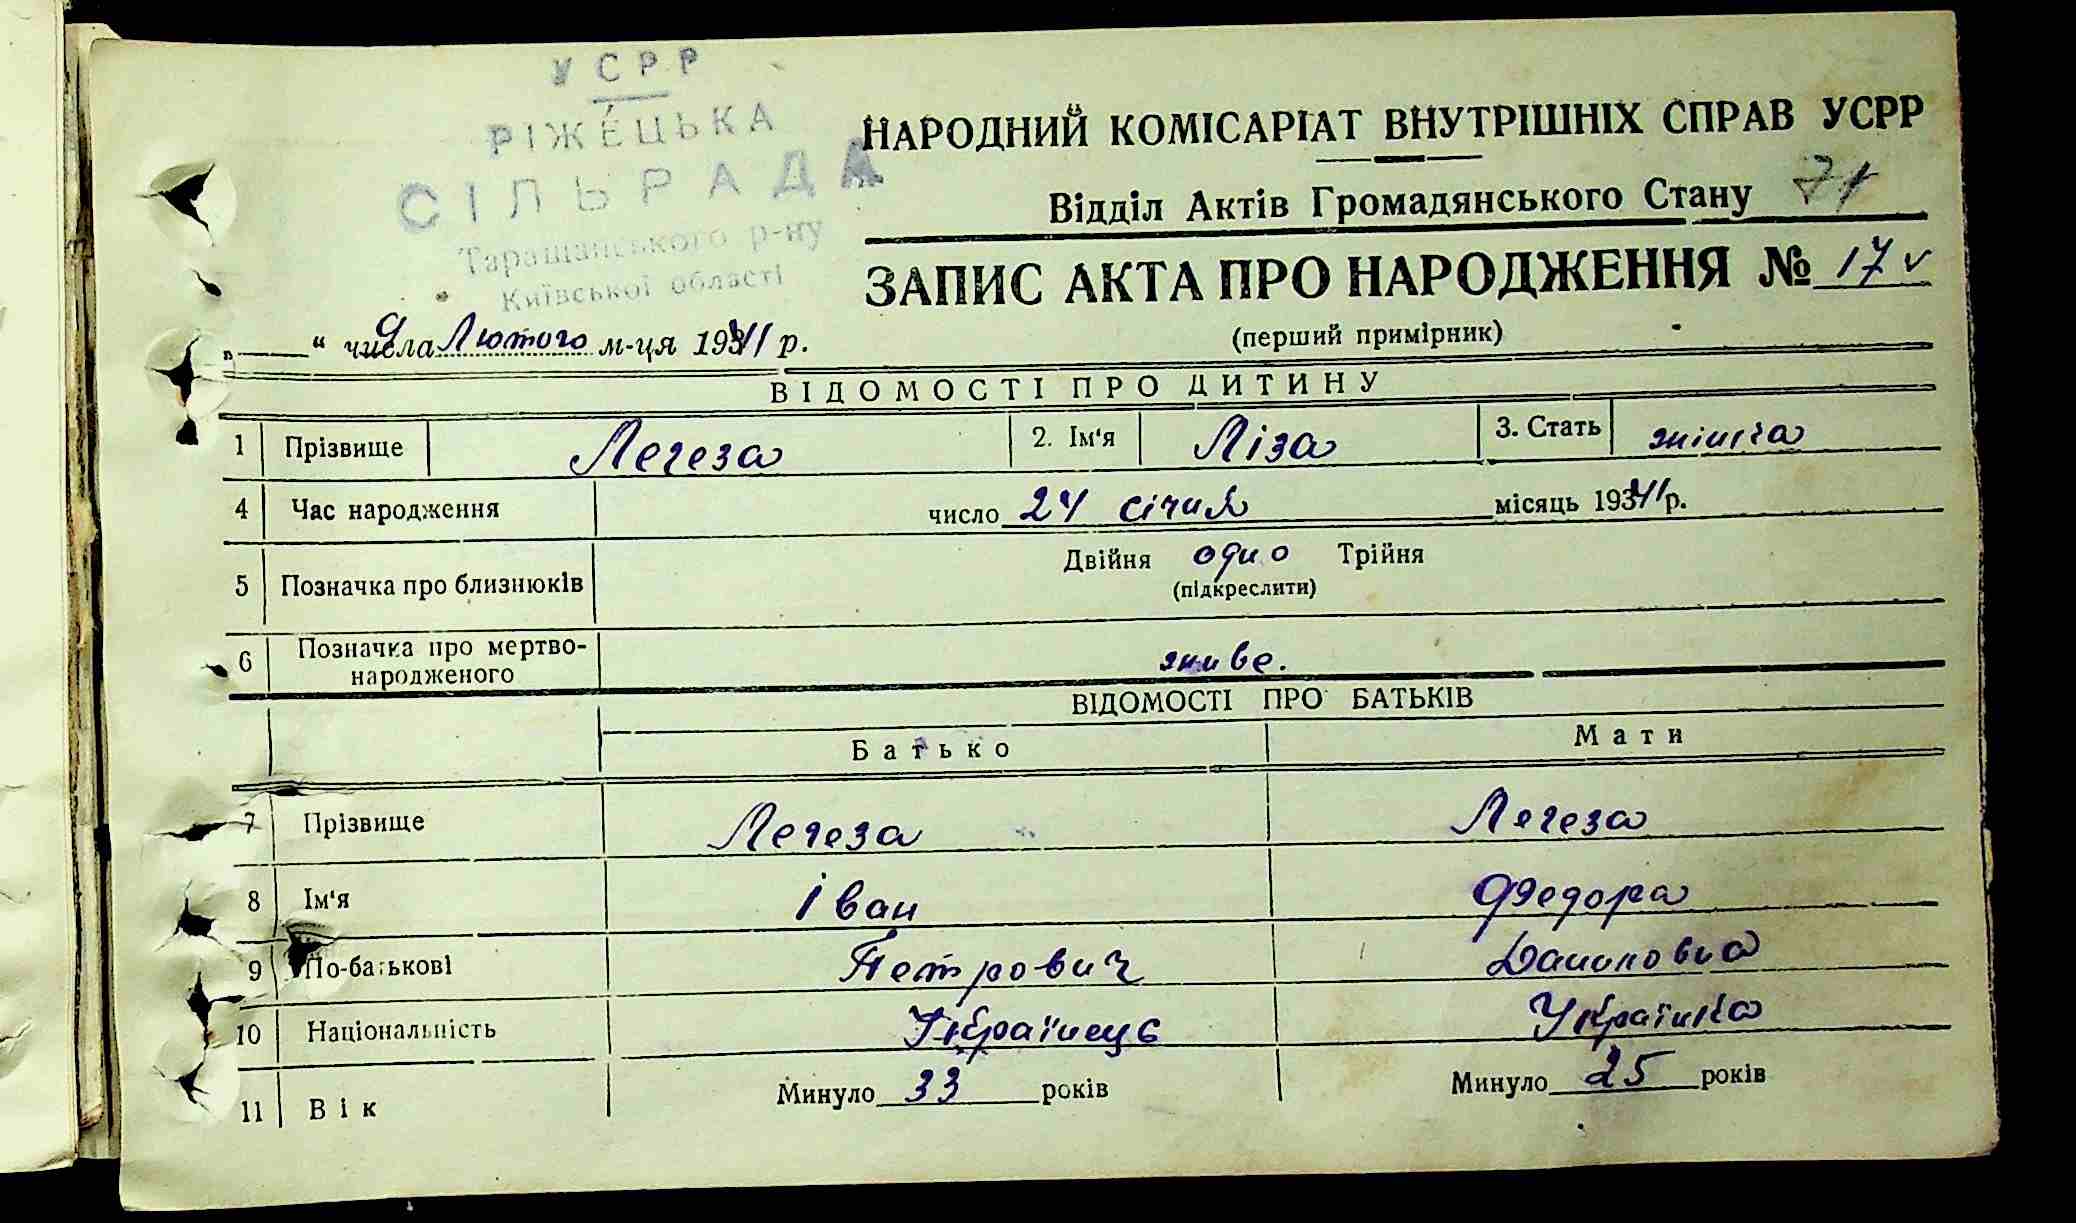 УСРР
РІЖЕЦЬКА
СІЛЬРАДА
Таращанського р-ну
Київської області
НАРОДНИЙ КОМІСАРІАТ ВНУТРІШНІХ СПРАВ УСРР
Відділ Актів Громадянського Стану 71
ЗАПИС АКТА ПРО НАРОДЖЕННЯ № 17 v
(перший примірник)
„ “ 9 числа Лютого м-ця 1941 р.
ВІДОМОСТІ ПРО ДИТИНУ
1 Прізвище Легеза 2. Ім'я Ліза 3. Стать жіноча
4 Час народження число 24 січня місяць 1941 р.
5 Позначка про близнюків Двійня одно Трійня
(підкреслити)
6 Позначка про мертво-
народженого живе.
ВІДОМОСТІ ПРО БАТЬКІВ
Батько Мати
7 Прізвище Легеза Легеза
8 Ім'я Іван Федора
9 По-батькові Петрович
10 Національність Українець Українка
11 Вік Минуло 33 років Минуло 25 років